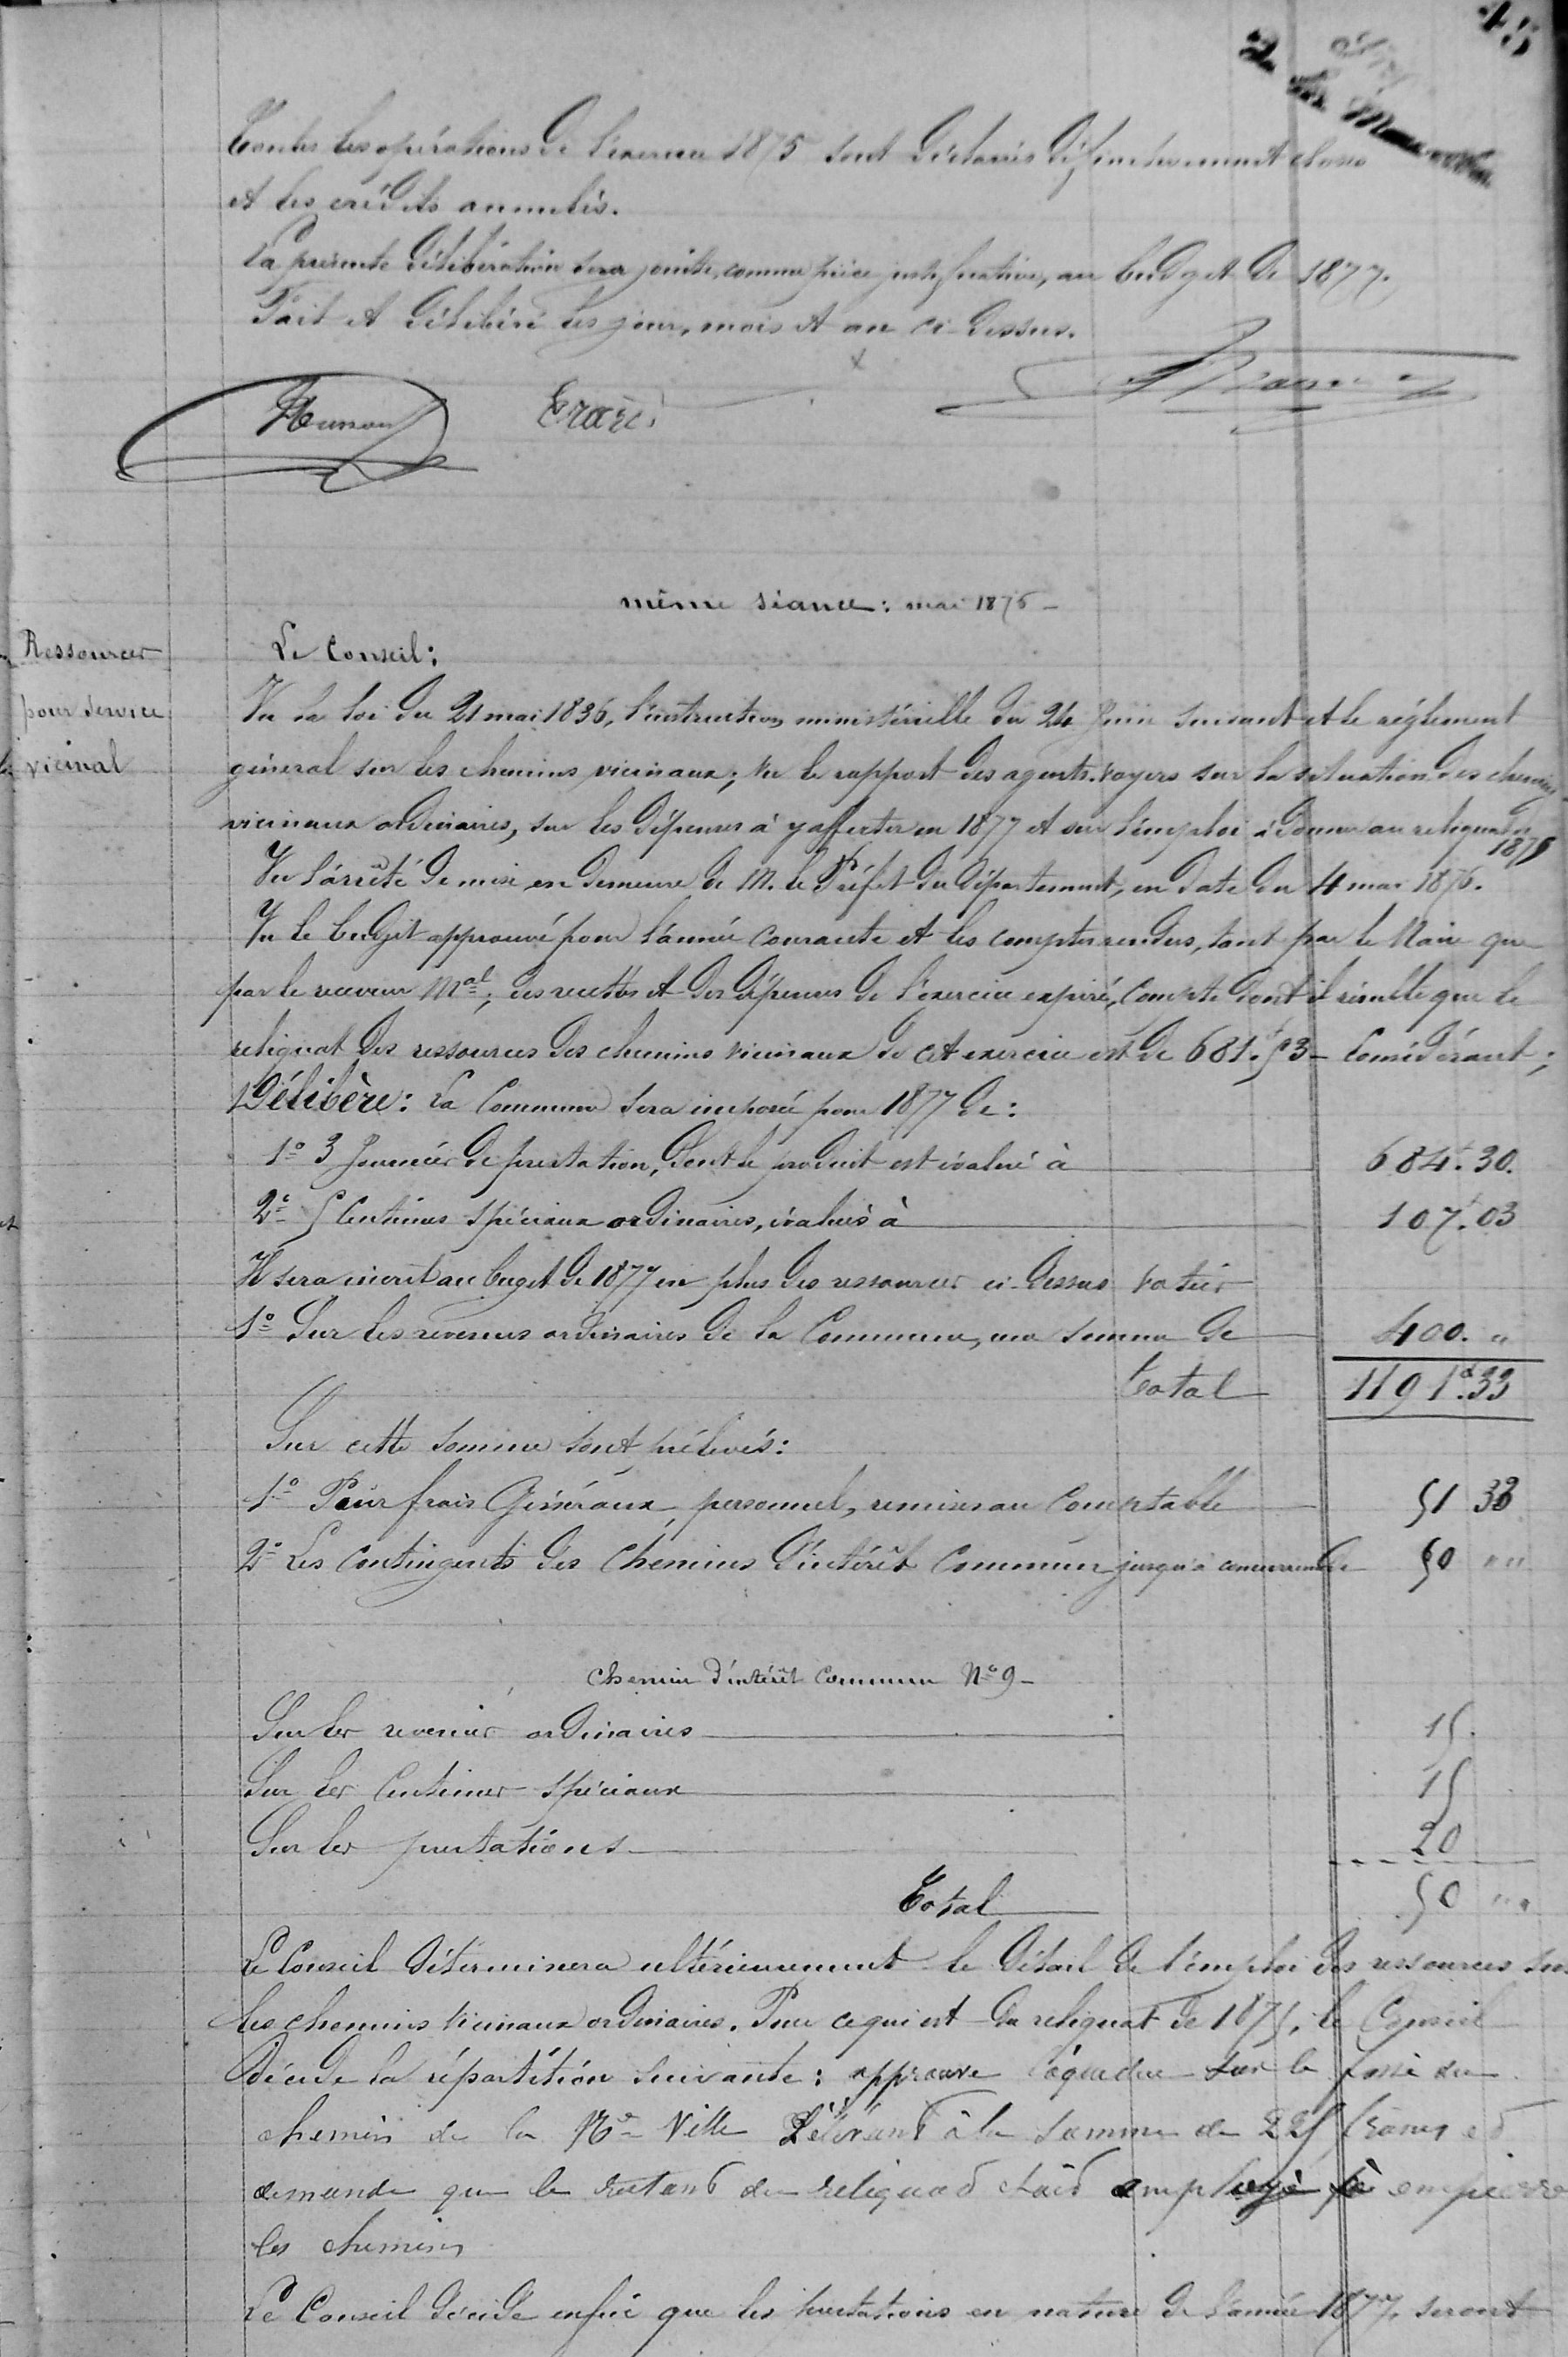 45
Toutes les opérations de l'exercice 1875 sont déclarés définitivement closes
et les crédits annulés.
La présente délibération sera jointe, comme pièce justificative, au budget de 1877.
Fait et délibéré les jour, mois et an ci-dessus.
Erard
même séance : mai 1876 -
Ressources
pour service
vicinal
Le Conseil :
Vu la loi du 21 mai 1836, l'instruction ministérielle du 24 Juin suivant et le réglement
général sur les chemins vicinaux ; Vu le rapport des agents-voyers sur la situation des chemins
vicinaux ordinaires, sur les dépenses à y affecter en 1877 et sur l'emploi à donner au reliquat de
1875
Vu l'arrêté de mise en demeure de M. le Préfet du département, en date du 4 mai 1876.
Vu le budget approuvé pour l'année courante et les comptes rendus, tant par le Maire que
par le receveur Mal, des recettes et des dépenses de l'exercice expiré, compte dont il résulte que le
reliquat des ressources des chemins vicinaux de cet exercice est de 681f.53 - Considérant ;
Délibère : La Commune sera imposée pour 1877 de :
1o 3 Journées de prestation, dont le produit est évalué à 684f.30.
2o 5 Centimes spéciaux ordinaires, évalués à 107f.03
Il sera inscrit au buget de 1877 en plus des ressources ci-dessus votées
1o Sur les revenus ordinaires de la Commune, une somme de 400. "
total 1191f.33
Sur cette somme sont prélevés :
1o Pour frais Généraux, personnel, remises au Comptable 51 33
2o Les contingents des Chemins d'intérêt Commun jusqu'à concurrence de 50 ""
Chemin d'intérêt Commun No 9 -
Sur les revenus ordinaires 15.
Sur les Centimes spéciaux 15
Sur les prestations 20
Total 50 ""
Le Conseil déterminera ultérieurement le détail de l'emploi des ressources sur
les chemins vicinaux ordinaires. Pour ce qui est du reliquat de 1875, le Conseil
décide la répartition suivante : approuve l'aqueduc sur le fossé du
chemin de la Ville s'élevant à la somme de 225 francs et
demande que le restant du reliquat soit employé à empierre
les chemins
Le Conseil décide enfin que les prestations en nature de l'année 1877, seront